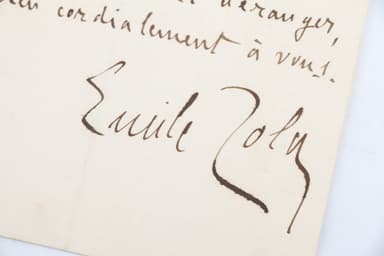 déranger,
bien cordialement à vous.
Emile Zola